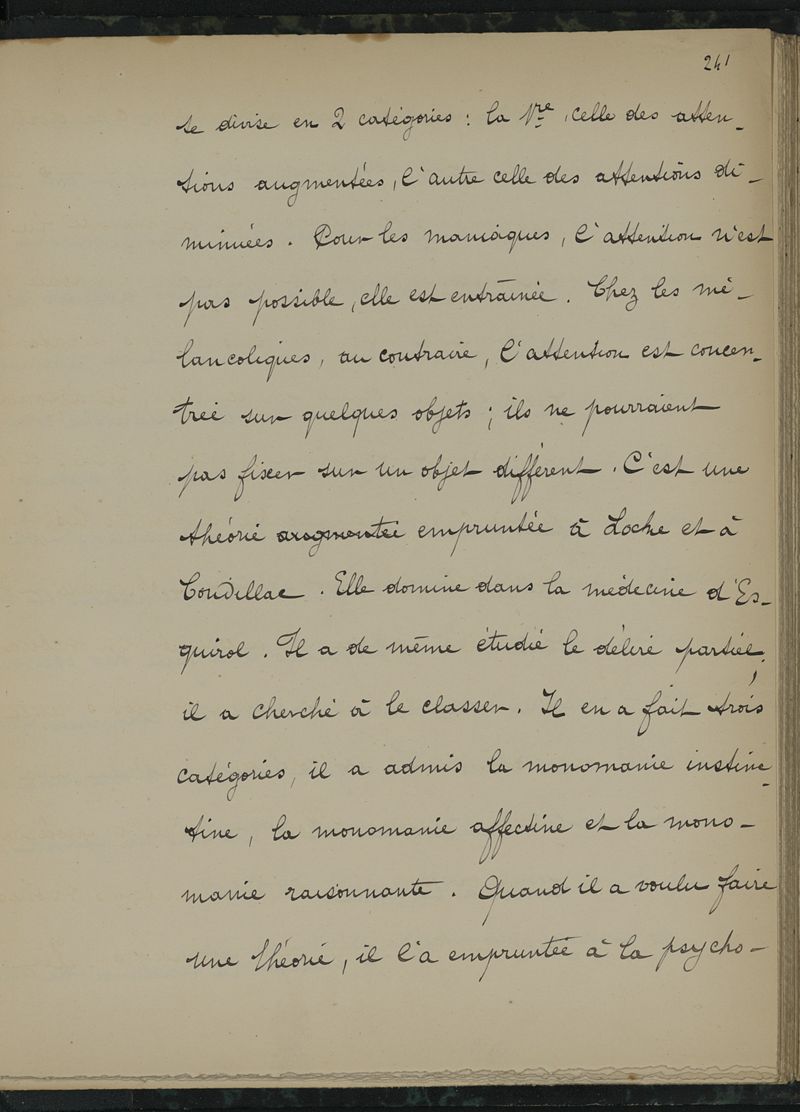 241
se divise en 2 catégories : la 1re, celle des atten-
tions augmentées, l'autre celle des attentions di-
minuées. Pour les maniaques, l'attention n'est
pas possible, elle est entraînée. Chez les mé-
lancoliques, au contraire, l'attention est concen-
trée sur quelques objets ; ils ne pourraient
pas fixer sur un objet différent. C'est une
théorie augmentée empruntée à Locke et à
Condillac. Elle domine dans la médecine d'Es-
quirol. Il a de même étudié le délire partiel ;
il a cherché à le classer. Il en a fait trois
catégories, il a admis la monomanie instinc-
tive, la monomanie affective et la mono-
manie raisonnante. Quand il a voulu faire
une théorie, il l'a empruntée à la psycho-